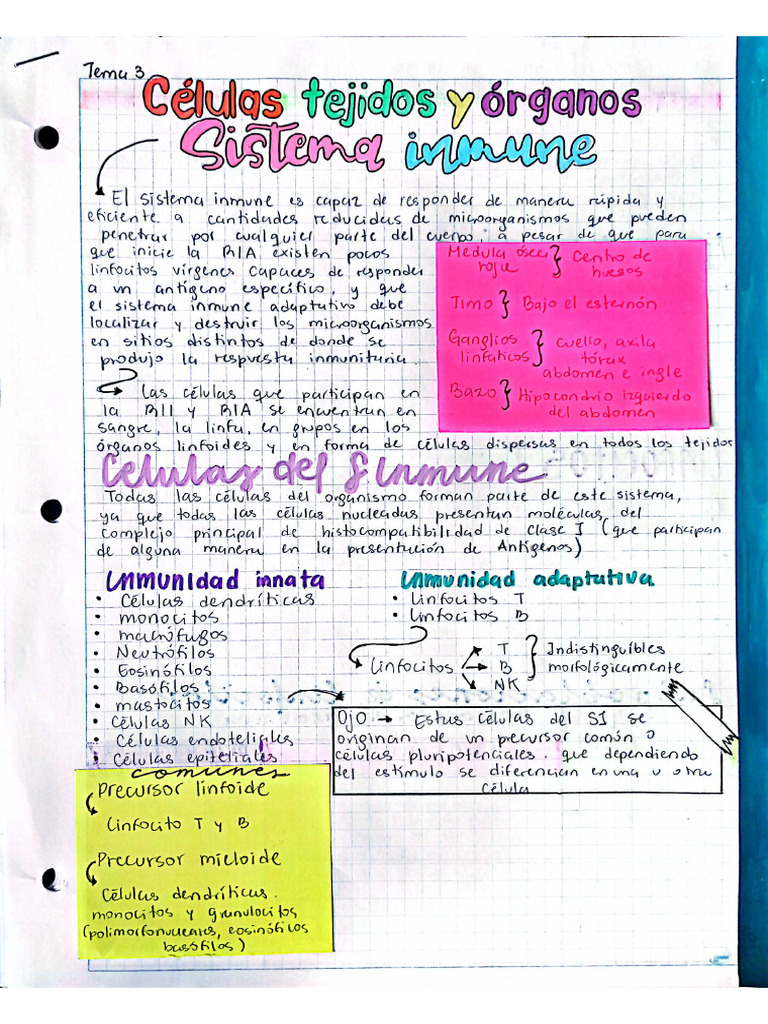 Tema 3
Células tejidos y órganos
Sistema inmune
El sistema inmune es capaz de responder de manera rápida y
eficiente a cantidades reducidas de microorganismos que pueden
penetrar por cualquier parte del cuerpo, a pesar de que para
que inicie la RIA existen pocos
linfocitos vírgenes capaces de responder
a un antígeno específico, y que
el sistema inmune adaptativo debe
localizar y destruir los microorganismos
en sitios distintos de donde se
produjo la respuesta inmunitaria.
Medula ósea
roja } Centro de
huesos
Timo } Bajo el esternón
Ganglios
linfáticos } cuello, axila
tórax
abdomen e ingle
Bazo } Hipocondrio izquierdo
del abdomen
Las células que participan en
la RII y RIA se encuentran en
sangre, la linfa, en grupos en los
órganos linfoides y en forma de células dispersas en todos los tejidos
Células del S inmune
Todas las células del organismo forman parte de este sistema,
ya que todas las células nucleadas presentan moléculas del
complejo principal de histocompatibilidad de Clase I (que participan
de alguna manera en la presentación de Antígenos)
Inmunidad innata
• Células dendríticas
• monocitos
• macrófagos
• Neutrófilos
• Eosinófilos
• Basófilos
• mastocitos
• Células NK
• Células endoteliales
• Células epiteliales
Inmunidad adaptativa
• Linfocitos T
• Linfocitos B
Linfocitos → T
B
NK
} Indistinguibles
morfológicamente
Ojo → Estas células del SI se
originan de un precursor común o
células pluripotenciales. que dependiendo
del estímulo se diferencian en una u otra
célula
comunes
Precursor linfoide
Linfocito T y B
Precursor mieloide
Células dendríticas.
monocitos y granulocitos
(polimorfonucleares, eosinófilos
basófilos)